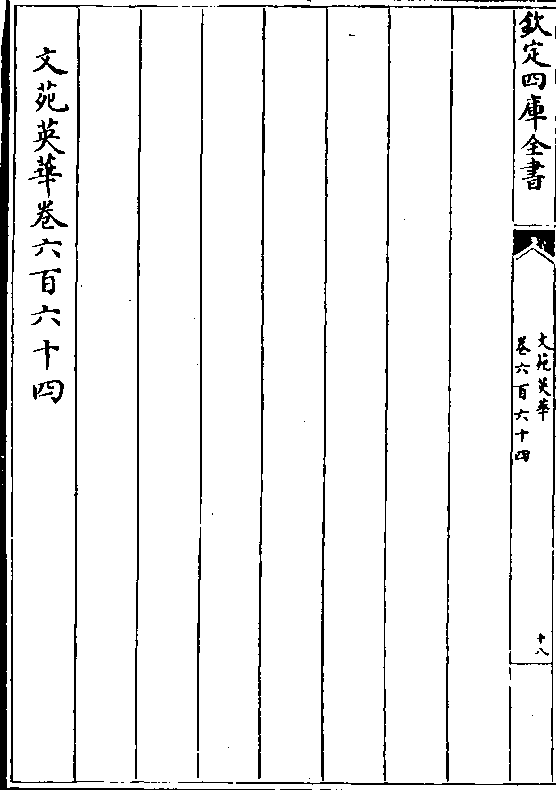 欽定四庫全書
文苑英華
卷六百六十四
十八
文苑英華卷六百六十四